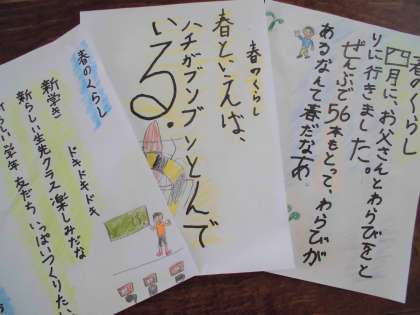 春のくらし
四月に、お父さんとわらびをと
りに行きました。
ぜんぶで56本もとって、わらびが
あるなんて春だなあ。
春のくらし
春といえば、
ハチがブンブンとんで
いる。
春のくらし
新学き　ドキドキドキ
新らしい生先クラス楽しみだな
らしい学年　友だち　いっぱいつくりたい